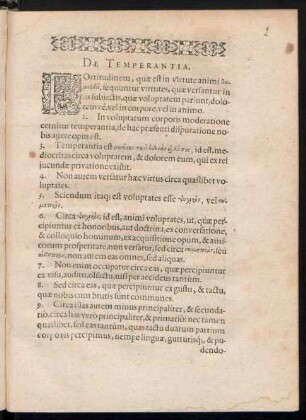 2
DE TEMPERANTIA.
FOrtitudinem, quæ est in virtute animi
sequuntur virtutes, quæ versantur in
iis subiectis, quæ voluptatem pariunt, dolo-
remvè, vel in corpore, vel in animo.
2. In voluptatum corporis moderatione
cernitur temperantia, de hac præsenti disputatione no-
bis agere opus est.
3. Temperantia est id est, me-
diocritas circa voluptatem, & dolorem eum, qui ex rei
iucundæ privatione existit.
4. Non autem versatur hæc virtus circa quaslibet vo-
luptates.
5. Sciendum itaq; est voluptates esse vel
6. Circa id est, animi voluptates, ut, quæ per-
cipiuntur ex honoribus, aut doctrina, ex conversatione,
& colloquio hominum, ex acquisitione opum, & ami-
corum prosperitate, non versatur, sed circa
non tamen circa eas omnes, sed aliquas.
7. Non enim occupatur circa eas, quæ percipiuntur
ex visu, auditu, olfactu, nisi per accidens tantum.
8. Sed circa eas, quæ percipiuntur ex gustu, & tactu,
quæ nobis cum brutis sunt communes.
9. Circa illas autem minus principaliter, & secunda-
riò: circa has verò principaliter, & primariò: nec tamen
quaslibet, sed eas tantùm, quas tactu duarum partium
corporis percipimus, nempe linguæ, gutturisq;, & pu-
dendo-